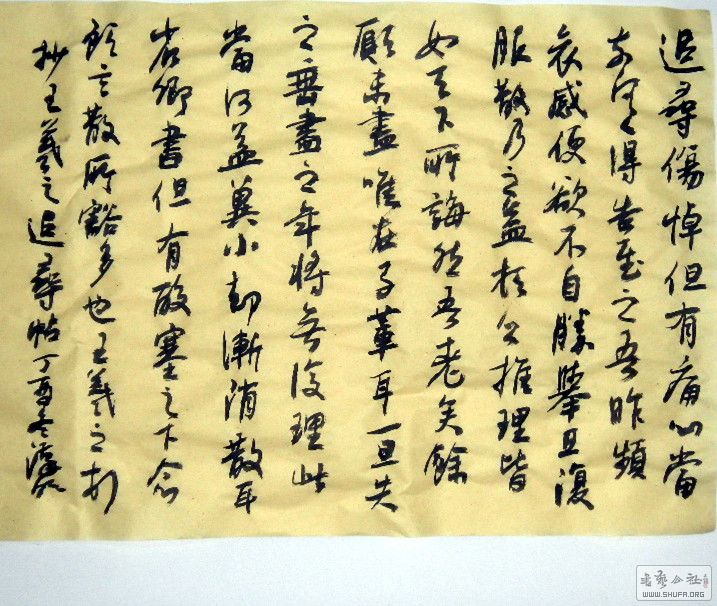 追尋傷悼但有痛心當
奈何得告慰之吾昨頻
哀感便欲不自勝舉旦復
服散乃之益枝公推理皆
如天下所誨然吾老矣餘
願未盡唯在子輩耳一旦失
之無盡之年將無復理此
當何益冀小却漸消散耳
省卿書但有酸塞足下念
顧言散所豁多也王羲之
抄王羲之追尋帖丁酉冬
書艺公社
WWW.SHUFA.ORG